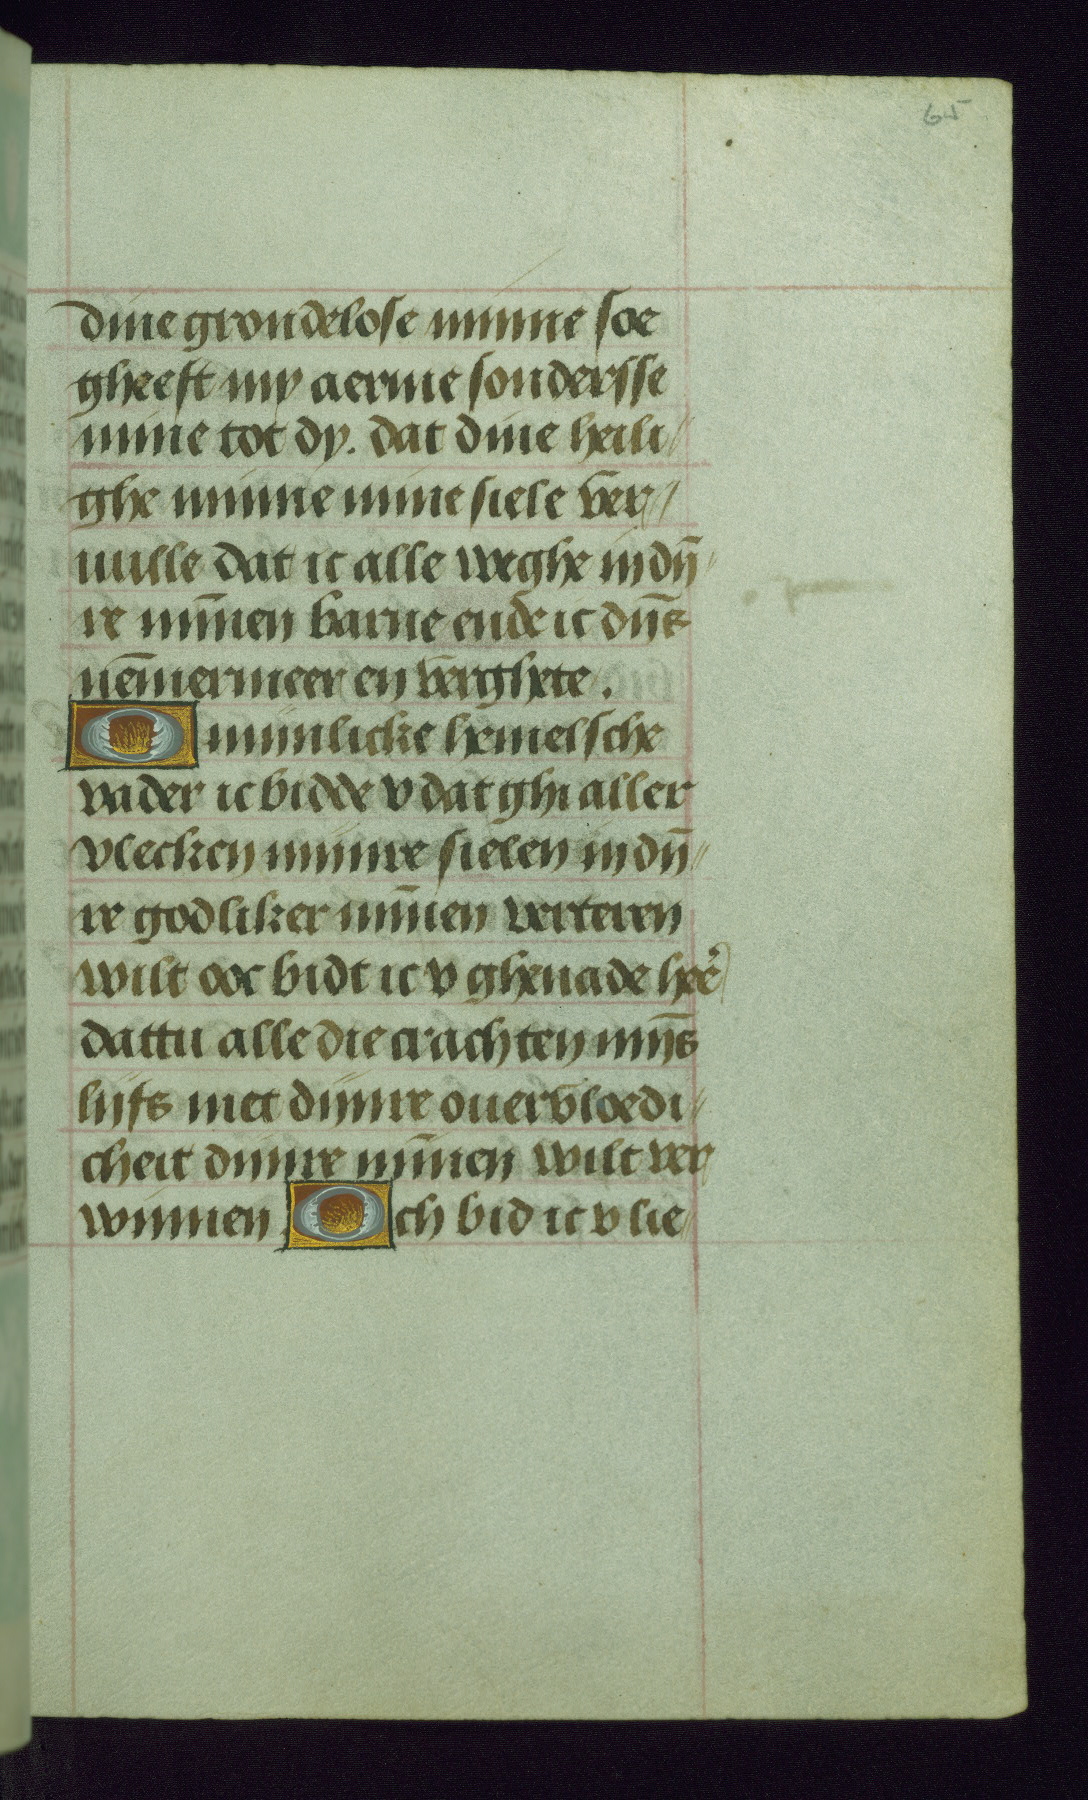 65
dine grondelose minne soe
gheeft my aerme sondersse
mine tot dy. dat dine heili
ghe minne mine siele v̄er
uulle dat ic alle weghe in dȳ
re mīnen barne ende ic dijn̄s
nēmermeer en v̄erghete.
O minlicke hemelsche
vader ic bidde v dat ghi aller
vlecken minre sielen in dȳ
re godliker mīnen verteren
wilt ooc bidt ic v ghenade heē
dattu alle die crachten mijn̄s
lijfs met dijnre ouerv̄loedi
cheit dijnre mīnen wilt ver
winnen. Och bid ic v lie